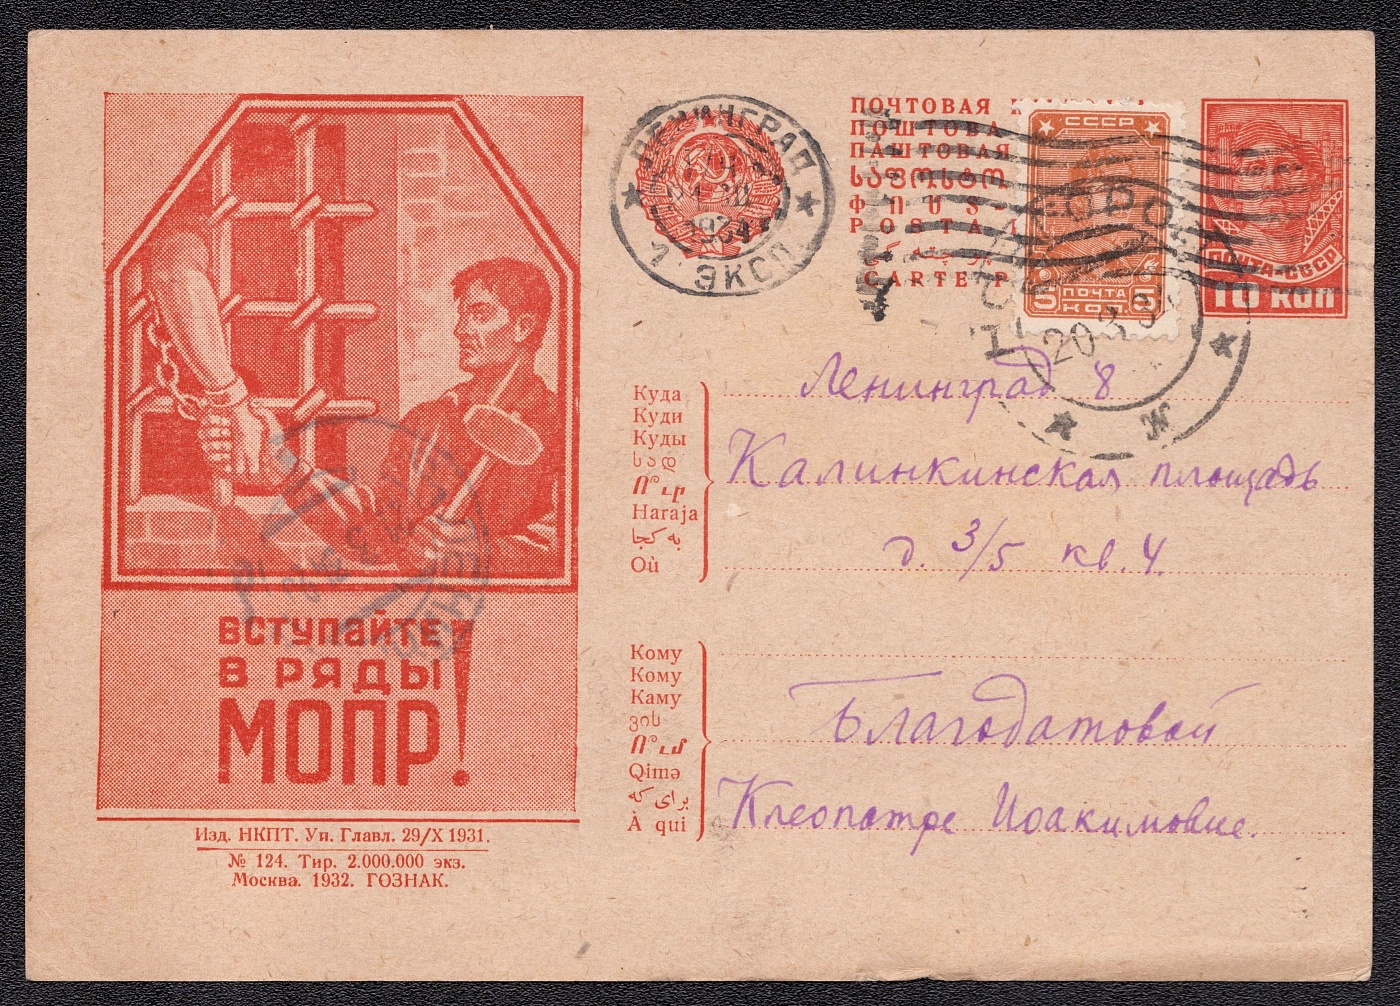 ВСТУПАЙТЕ
В РЯДЫ
МОПР!
Изд. НКПТ. Уп. Главл. 29/X 1931.
№ 124. Тир. 2.000.000 экз.
Москва. 1932. ГОЗНАК.
ЛЕНИНГРАД
1934
1 ЭКСП.
ПОЧТОВАЯ
ПОШТОВА
ПАШТОВАЯ
POSTA
CARTE P
СССР
5 ПОЧТА 5
КОП.
ПОЧТА-СССР
10 КОП
20.3.3
Куда
Куди
Куды
სად
Ո՞ւր
Haraja
به کجا
Où
Ленинград 8
Калинкинская площадь
д. 3/5 кв. 4.
Кому
Кому
Каму
ვის
Ո՞ւմ
Qimə
برای که
À qui
Благодатовой
Клеопатре Иоакимовне.